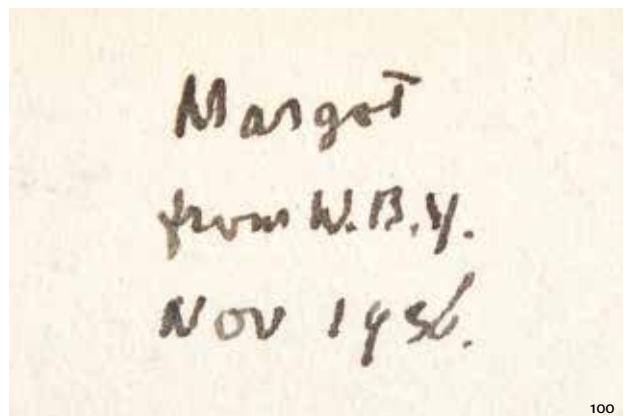 Margot
from W.B.Y.
Nov 1936.
100